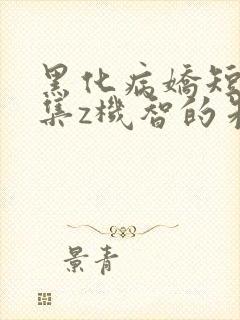 黑化病嬌短
集z機智的
景青